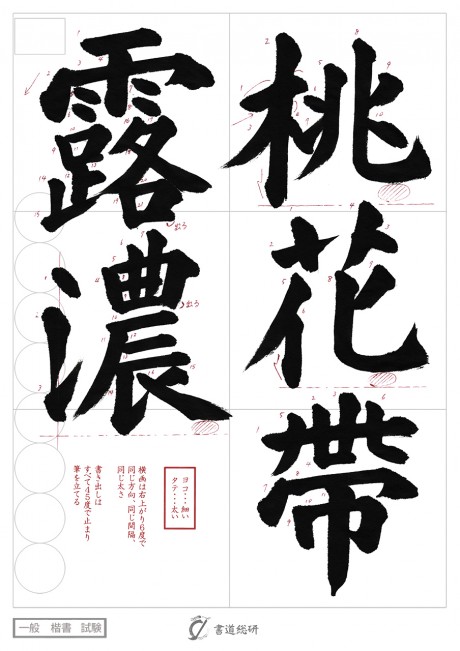 桃花帶
露濃
出る
出る
ヨコ…細い
タテ…太い
横画は右上がり6度で
同じ方向、同じ間隔、
同じ太さ
書き出しは
すべて45度で止まり
筆を立てる
一般 楷書 試験
書道総研